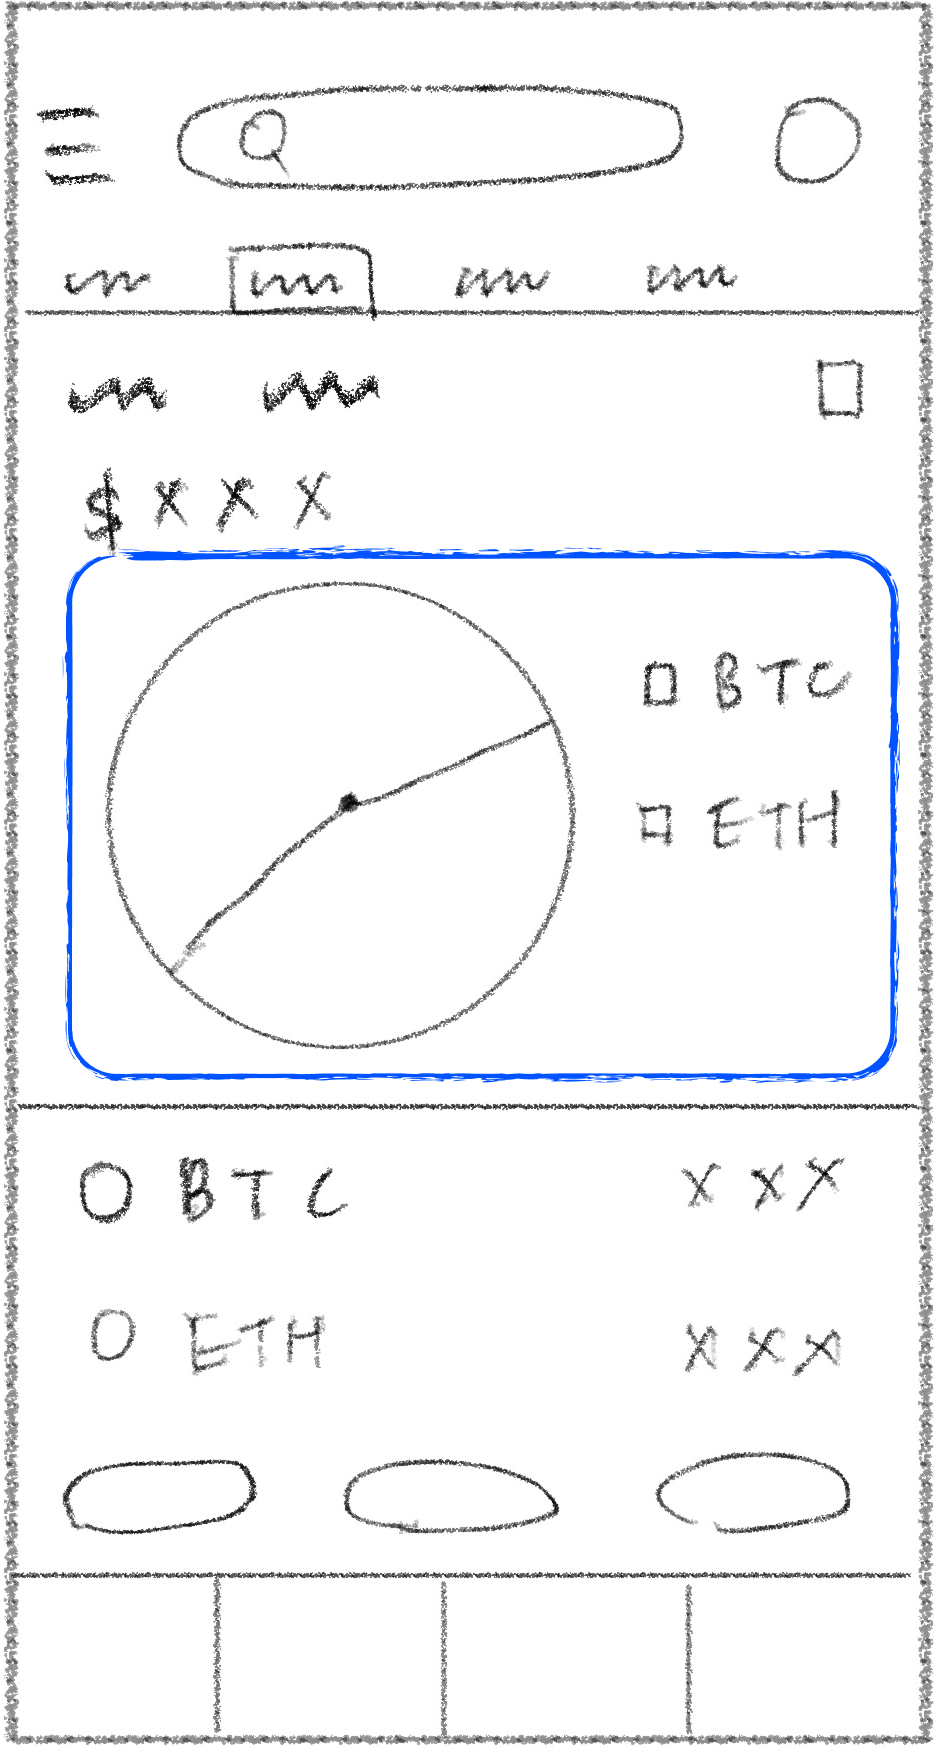 $ X X X
BTC
ETH
BTC X X X
ETH X X X